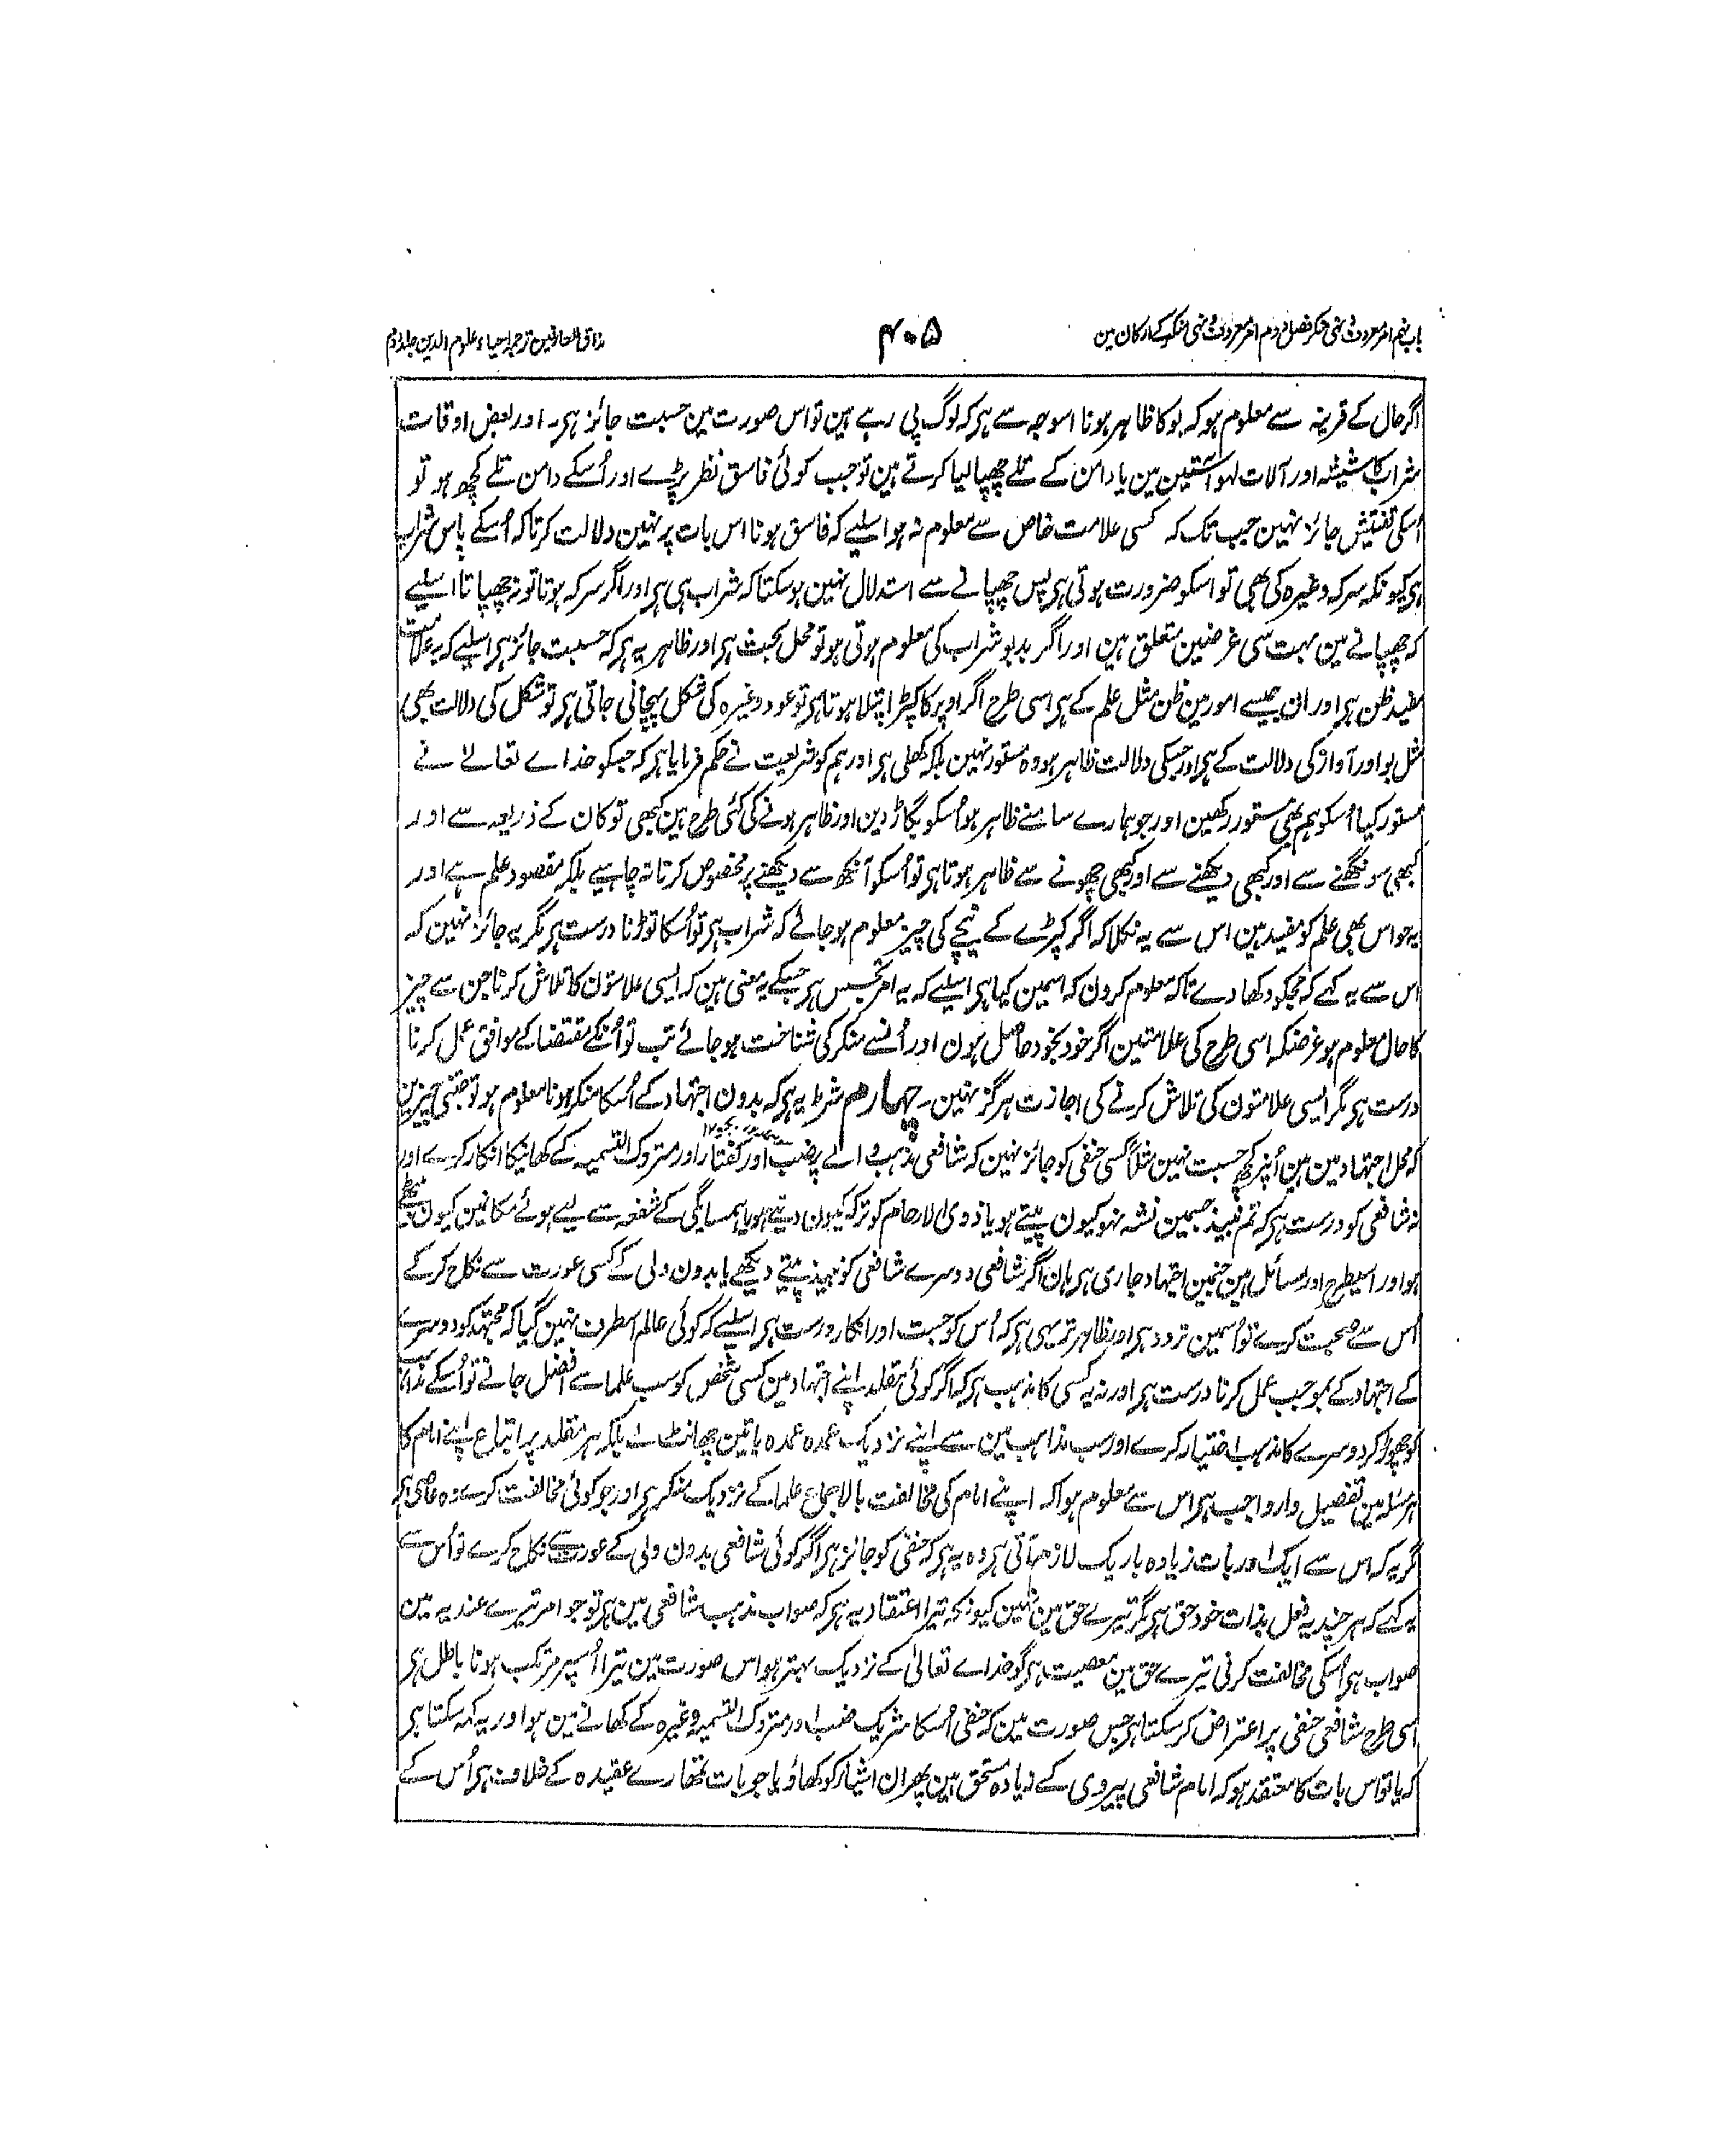 باب نہم امر معروف و نہی منکر فصل دوم امر معروف و نہی منکر کے ارکان مین
۴۰۵
مذاق العارفین ترجمہ احیاء علوم الدین جلد دوم
اگر حال کے قرینہ سے معلوم ہو کہ بو کا ظاہر ہونا اسوجہ سے ہی کہ لوگ پی رہے ہین تو اس صورت مین حسبت جائز ہی۔ اور بعض اوقات
شراب کا شیشہ اور آلات لہو آستین مین یا دامن کے تلے چھپا لیا کرتے ہین تو جب کوئی فاسق نظر پڑے اور اُسکے دامن تلے کچھ ہو تو
اُسکی تفتیش جائز نہین جب تک کہ کسی علامت خاص سے معلوم نہ ہو اسلیے کہ فاسق ہونا اس بات پر نہین دلالت کرتا کہ اُسکے پاس شراب
ہی کیونکہ سرکہ وغیرہ کی بھی تو اسکو ضرورت ہوتی ہی پس چھپانے سے استدلال نہین ہو سکتا کہ شراب ہی ہی اور اگر سرکہ ہوتا تو نہ چھپاتا اسلیے
کہ چھپانے مین بہت سی غرضین متعلق ہین اور اگر بدبو شراب کی معلوم ہوتی ہو تو محل بحث ہی اور ظاہر یہ ہی کہ حسبت جائز ہی اسلیے کہ یہ علامت
مفید ظن ہی اور ان جیسے امور مین ظن مثل علم کے ہی اسی طرح اگر اوپر کا کپڑا پتلا ہوتا ہی تو عود وغیرہ کی شکل پہچانی جاتی ہی تو شکل کی دلالت بھی
مثل بو اور آواز کی دلالت کے ہی اور جسکی دلالت ظاہر ہو وہ مستور نہین بلکہ کھلی ہی اور ہم کو شریعت نے حکم فرمایا ہی کہ جسکو خداے تعالے نے
مستور کیا اُسکو ہم بھی مستور رکھین اور جو ہمارے سامنے ظاہر ہو اُسکو بگاڑ دین اور ظاہر ہونے کی کئی طرح ہین کبھی تو کان کے ذریعہ سے اور
کبھی سونگھنے سے اور کبھی دیکھنے سے اور کبھی چھونے سے ظاہر ہوتا ہی تو اُسکو آنکھ سے دیکھنے پر مخصوص کرنا نہ چاہیے بلکہ مقصود علم ہے اور
یہ حواس بھی علم کو مفید ہین اس سے یہ نکلا کہ اگر کپڑے کے نیچے کی چیز معلوم ہو جائے کہ شراب ہی تو اُسکا توڑنا درست ہی مگر یہ جائز نہین کہ
اس سے یہ کہے کہ مجکو دکھا دے تاکہ معلوم کرون کہ اسمین کیا ہی اسلیے کہ یہ امر تجسس ہی جسکے یہ معنی ہین کہ ایسی علامتون کا تلاش کرنا جن سے چیز
کا حال معلوم ہو غرضکہ اسی طرح کی علامتین اگر خود بخود حاصل ہون اور اُنسے منکر کی شناخت ہو جائے تب تو اُنکے مقتضا کے موافق عمل کرنا
درست ہی مگر ایسی علامتون کی تلاش کرنے کی اجازت ہرگز نہین۔ چہارم شرط یہ ہی کہ بدون اجتہاد کے اُسکا منکر ہونا معلوم ہو تو جتنی چیزین
کہ محل اجتہاد مین ہین اُنپر کچھ حسبت نہین مثلاً کسی حنفی کو جائز نہین کہ شافعی مذہب والے پر ضب اور کفتار اور متروک التسمیہ کے کھانیکا انکار کرے اور
نہ شافعی کو درست ہی کہ تم نبیذ جسمین نشہ نہو کیون پیتے ہو یا ذوی الارحام کو ترکہ کیون دیتے ہو یا ہمسایگی کے شفعہ سے لیے ہوئے مکانمین کیون بیٹھے
ہو اور اسیطرح اور مسائل ہین جنمین اجتہاد جاری ہی ہان اگر شافعی دوسرے شافعی کو نبیذ پیتے دیکھے یا بدون ولی کے کسی عورت سے نکاح کر کے
اُس سے صحبت کرے تو اُسمین تردد ہی اور ظاہر تر یہی ہی کہ اُس کو حسبت اور انکار درست ہی اسلیے کہ کوئی عالم اسطرف نہین گیا کہ مجتہد کو دوسرے
کے اجتہاد کے بموجب عمل کرنا درست ہی اور نہ یہ کسی کا مذہب ہی کہ اگر کوئی مقلد اپنے اجتہاد مین کسی شخص کو سب علما سے افضل جانے تو اُسکے مذہب
کو چھوڑ کر دوسرے کا مذہب اختیار کرے اور سب مذاہب مین سے اپنے نزدیک عمدہ عمدہ باتین چھانٹ لے بلکہ ہر مقلد پر اتباع اپنے امام کا
ہر مسئلہ مین تفصیل وار واجب ہی اس سے معلوم ہوا کہ اپنے امام کی مخالفت بالاجماع علما کے نزدیک منکر ہی اور جو کوئی مخالفت کرے وہ عاصی ہی
مگر یہ کہ اس سے ایک اور بات زیادہ باریک لازم آتی ہی وہ یہ ہی کہ حنفی کو جائز ہی اگر کوئی شافعی بدون ولی کے عورت سے نکاح کرے تو اُس سے
یہ کہے کہ ہر چند یہ فعل بذات خود حق ہی مگر تیرے حق مین نہین کیونکہ تیرا اعتقاد یہ ہی کہ صواب مذہب شافعی مین ہی تو جو امر تیرے عندیہ مین
صواب ہی اُسکی مخالفت کرنی تیرے حق مین معصیت ہی گو خداے تعالیٰ کے نزدیک بہتر ہو اس صورت مین تیرا اُسپر مرتکب ہونا باطل ہی
اسی طرح شافعی حنفی پر اعتراض کر سکتا ہی جس صورت مین کہ حنفی اُسکا شریک ضب اور متروک التسمیہ وغیرہ کے کھانے مین ہو اور یہ کہہ سکتا ہی
کہ یا تو اس بات کا معتقد ہو کہ امام شافعی پیروی کے زیادہ مستحق ہین پھر ان اشیار کو کھاؤ یا جو بات تمھارے عقیدہ کے خلاف ہی اُس کے